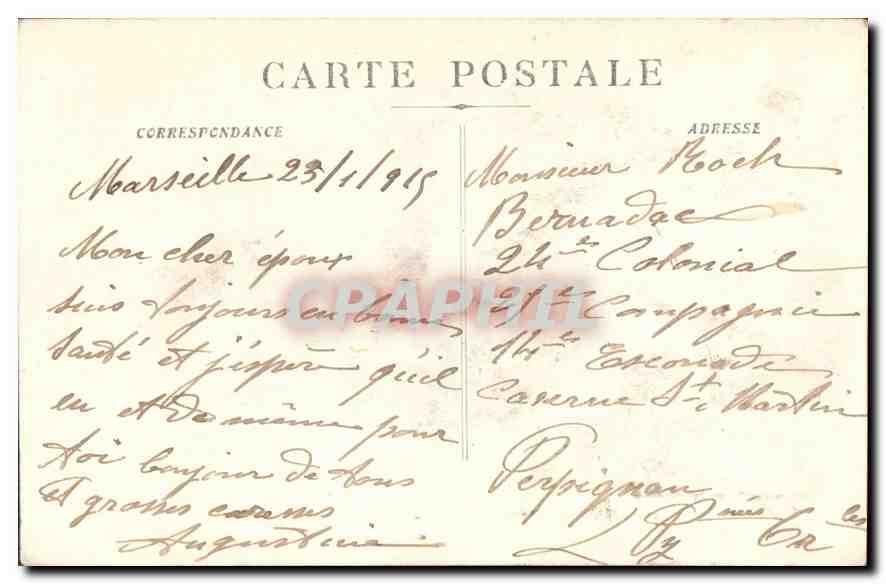 CARTE POSTALE
CORRESPONDANCE
Marseille 23/1/915
Mon cher époux
suis toujours en bonne
santé et j'espère qu'il
en et de même pour
toi bonjour de tous
et grosses caresses
Augustine
ADRESSE
Monsieur Roch
Bernadac
24me Colonial
Compagnie
14me Escouade
Caserne St Martin
Perpignan
Pynées Ories
CPAPHIL